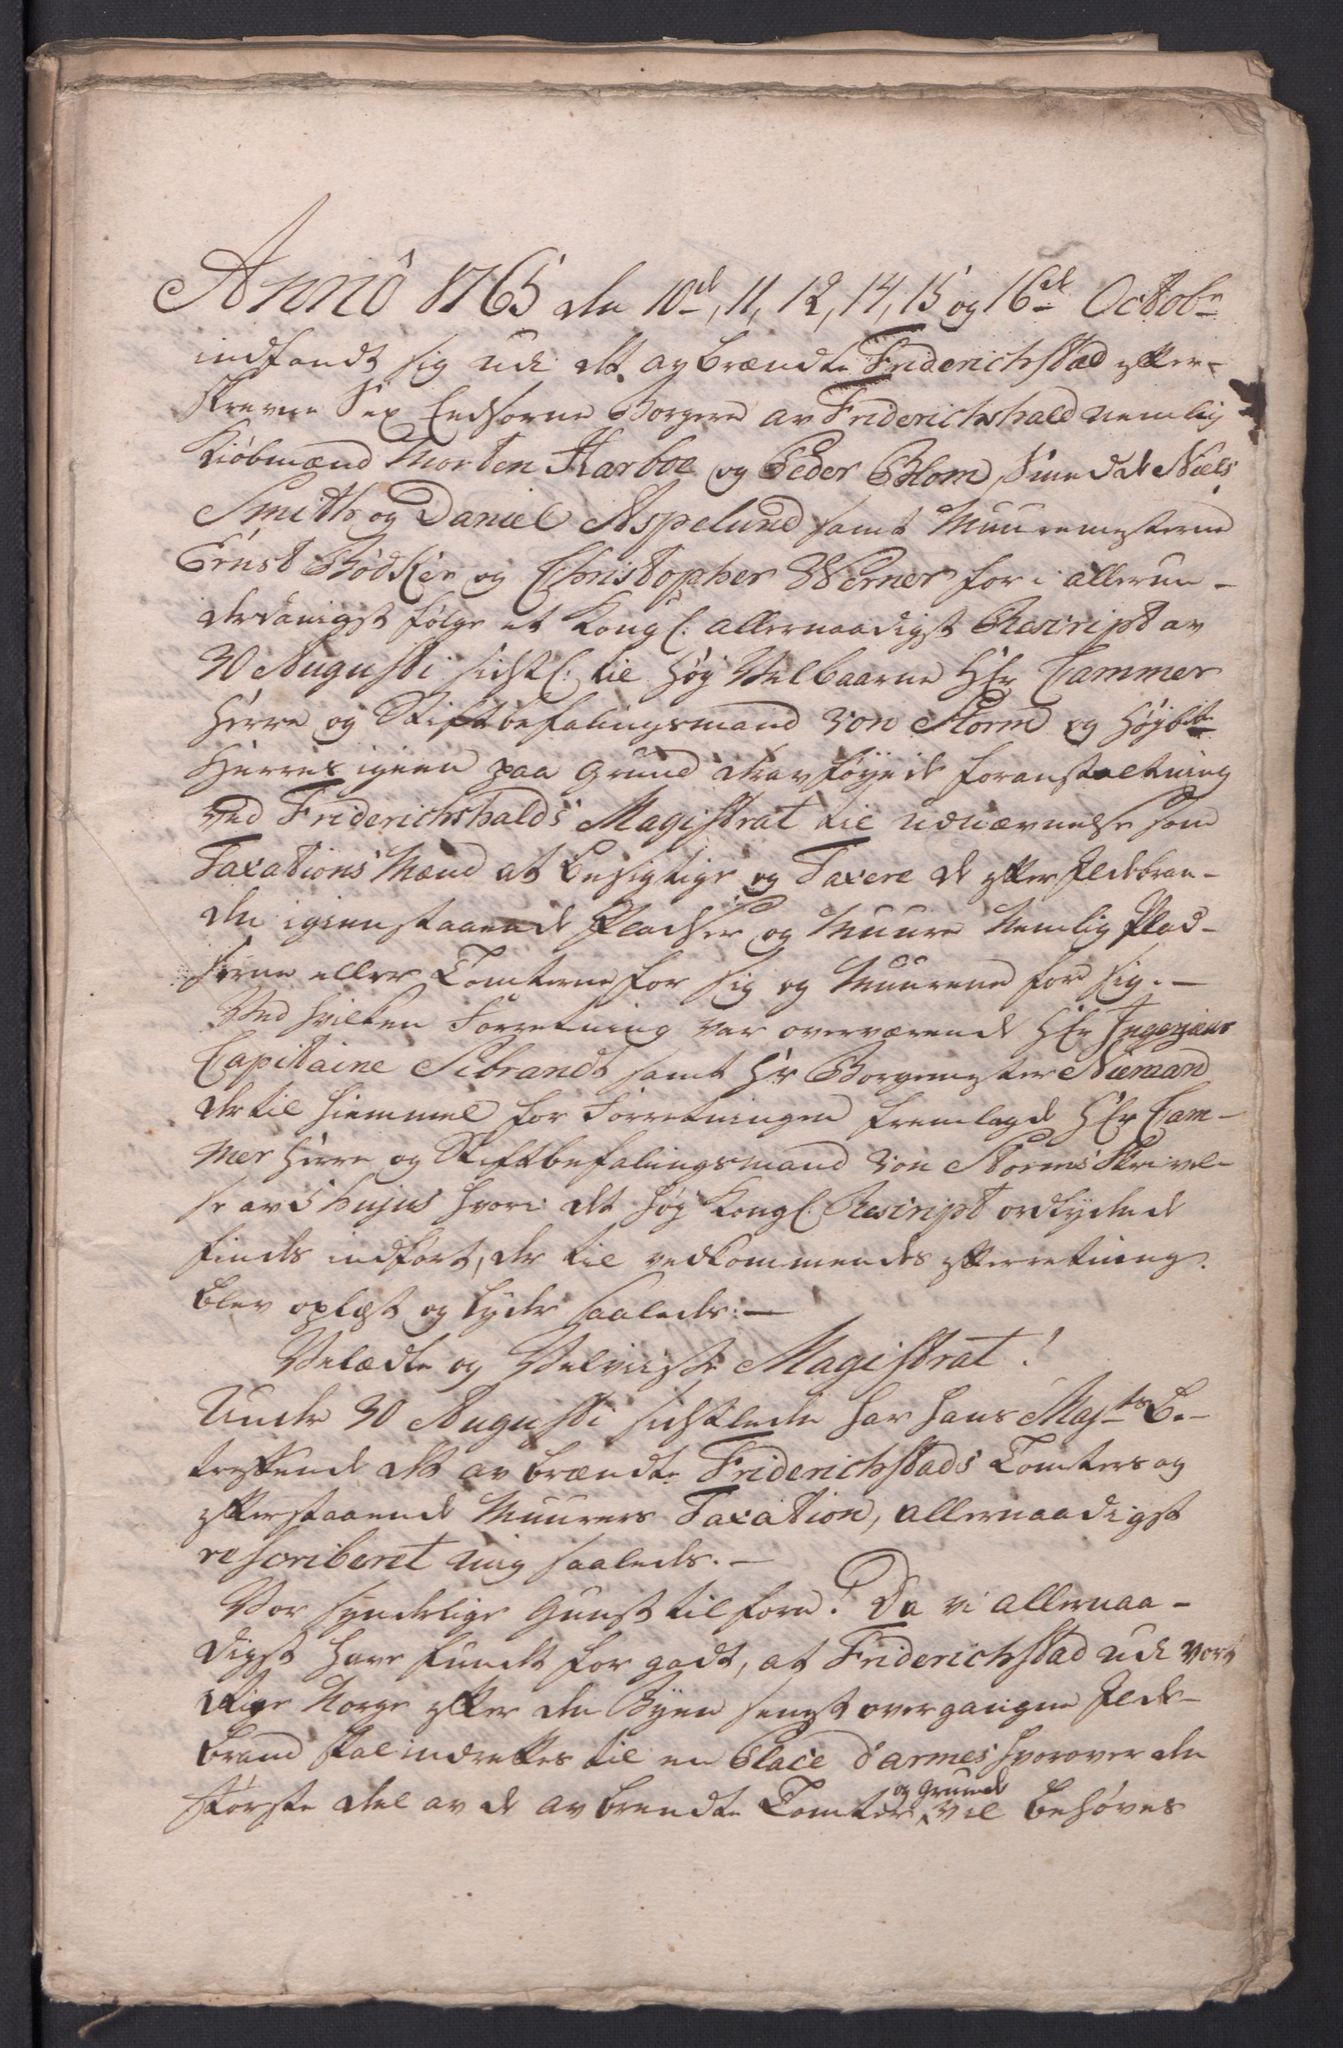 Anno 1765 den 10de, 11, 12, 14, 15 og 16de Octobr
indfandt sig udi det avbrændte Friderichstad efter-
skrevne Sex Eedsorne Borgere av Friderichshald nemlig
Kiøbmænd Morten Karboe og Peder Blom, Smedde Niels
Smith og Daniel Aspelund samt Muuremesterne
Ernst Bødker og Christopher Werner for i allerun-
derdanigst følge et Kongl: allernaadigst Rescript av
30 Augusti sidstl: til Høy Velbaarne Hr Cammer
Herre og Stiftbefalingsmand von Storm og Høybte
Herres igien paa Grund derav føyede foranstaltning
ved Friderichshalds Magistrat til udnævnelse som
Taxations Mænd at besigtige og Taxere de efter Ildebran-
den igienstaaende Pladser og Muure nemlig Plad-
serne eller Tomterne for sig og Muurene for sig. –
Ved hvilken Forretning var overværende Hr Ingenieur
Capitaine Sibrandt samt Hr Borgemester Nieman
der til hiemmel for Forretningen fremlagde Hr Cam-
mer Herre og Stiftbefalingsmand von Storms Skrivel-
se av 5 hujus hvori det høy Kongl: Rescript ordlydende
findes indført, der til vedkommendes efterretning
blev oplæst og lyder saaledes: –
Velædle og Velviise Magistrat!
Under 30 Augusti sidstleden har Hans Majts be-
treffende det avbrændte Friderichstads Tomters og
efterstaaende Muurers Taxation, allernaadigst
rescriberet mig saaledes. –
Vor synderlige Gunst tilforn! Da vi allernaa-
digst have fundet for godt, at Friderichstad udi vort
Rige Norge efter den Byen sengst overgangne Ilde-
brand skal indrettes til en Place d'armes, hvorover den
største del av de avbrendte Tomter og Grunde vil behøves